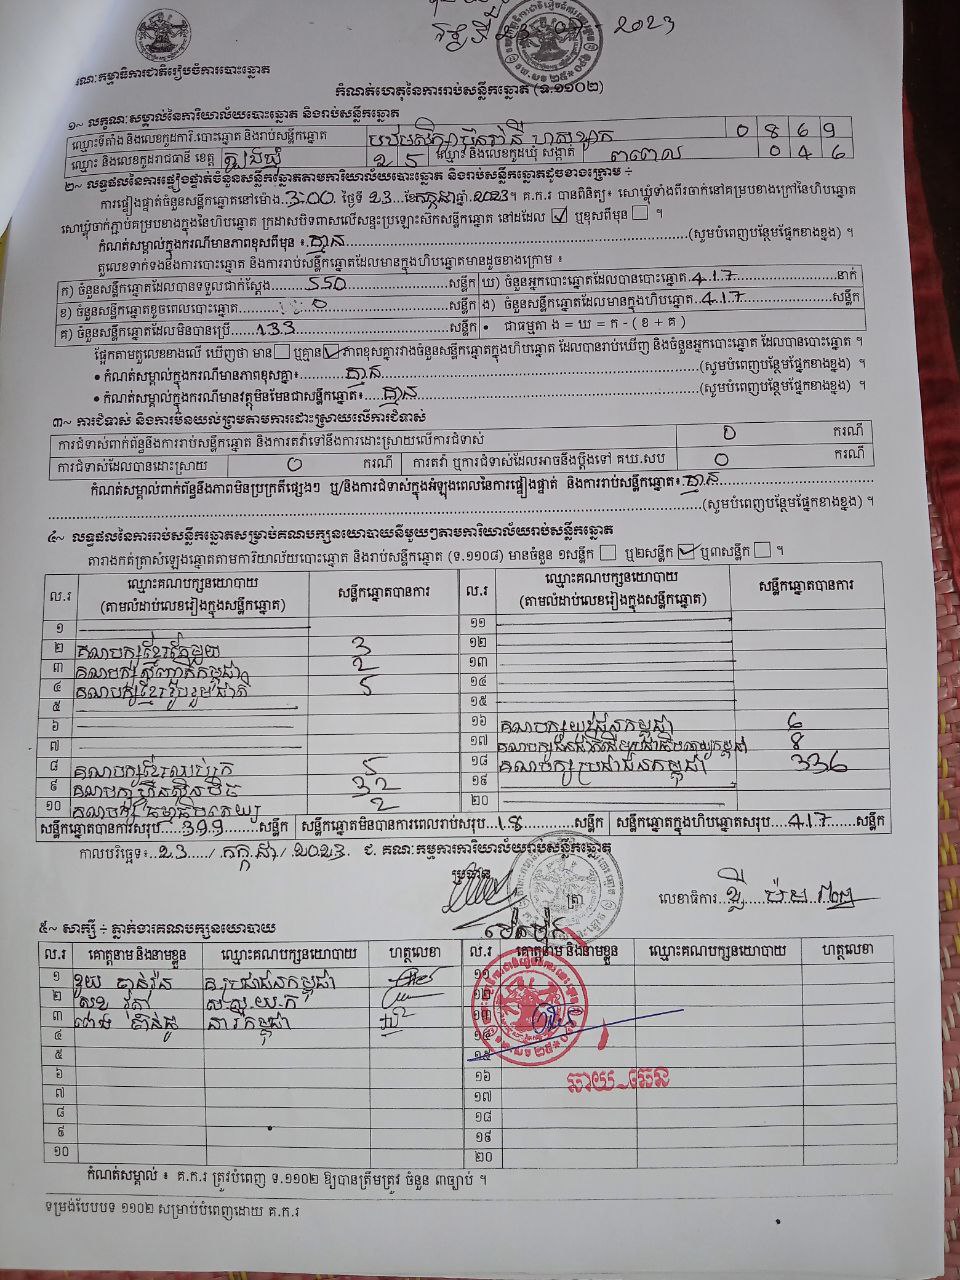 2023
គណៈកម្មាធិការជាតិរៀបចំការបោះឆ្នោត
កំណត់ហេតុនៃការរាប់សន្លឹកឆ្នោត (ទ.១១០២)
១~ លក្ខណៈសម្គាល់នៃការិយាល័យបោះឆ្នោត និងរាប់សន្លឹកឆ្នោត
ឈ្មោះទីតាំង និងលេខកូដការិ.បោះឆ្នោត និងរាប់សន្លឹកឆ្នោត 0 8 6 9
ឈ្មោះ និងលេខកូដរាជធានី ខេត្ត ត្បូងឃ្មុំ 2 5 ឈ្មោះ និងលេខកូដឃុំ សង្កាត់ 0 4 6
២~ លទ្ធផលនៃការផ្ទៀងផ្ទាត់ចំនួនសន្លឹកឆ្នោតតាមការិយាល័យបោះឆ្នោត និងរាប់សន្លឹកឆ្នោតដូចខាងក្រោម ÷
ការផ្ទៀងផ្ទាត់ចំនួនសន្លឹកឆ្នោតនៅម៉ោង..3:00.. ថ្ងៃទី 23... ខែកក្កដាឆ្នាំ.2023។ គ.ក.រ បានពិនិត្យ៖ សោឃ្លុំទាំងពីរចាក់នៅគម្របខាងក្រៅនៃហិបឆ្នោត
សោឃ្លុំចាក់ភ្ជាប់គម្របខាងក្នុងនៃហិបឆ្នោត ក្រដាសបិទពាសលើសន្ទះប្រឡោះស៊កសន្លឹកឆ្នោត នៅដដែល ☑ ឬខុសពីមុន ☐ ។
កំណត់សម្គាល់ក្នុងករណីមានភាពខុសពីមុន ៖ គ្មាន...(សូមបំពេញបន្ថែមផ្នែកខាងខ្នង) ។
តួលេខទាក់ទងនឹងការបោះឆ្នោត និងការរាប់សន្លឹកឆ្នោតដែលមានក្នុងហិបឆ្នោតមានដូចខាងក្រោម ៖
ក) ចំនួនសន្លឹកឆ្នោតដែលបានទទួលជាក់ស្តែង......550......សន្លឹក ឃ) ចំនួនអ្នកបោះឆ្នោតដែលបានបោះឆ្នោត..417......នាក់
ខ) ចំនួនសន្លឹកឆ្នោតខូចពេលបោះឆ្នោត......0......សន្លឹក ង) ចំនួនសន្លឹកឆ្នោតដែលមានក្នុងហិបឆ្នោត..417......សន្លឹក
គ) ចំនួនសន្លឹកឆ្នោតដែលមិនបានប្រើ......133......សន្លឹក • ជាធម្មតា ង = ឃ = ក - ( ខ + គ )
ផ្អែកតាមតួលេខខាងលើ ឃើញថា មាន ☐ ឬគ្មាន ☑ ភាពខុសគ្នារវាងចំនួនសន្លឹកឆ្នោតក្នុងហិបឆ្នោត ដែលបានរាប់ឃើញ និងចំនួនអ្នកបោះឆ្នោត ដែលបានបោះឆ្នោត ។
• កំណត់សម្គាល់ក្នុងករណីមានភាពខុសគ្នា៖......គ្មាន......(សូមបំពេញបន្ថែមផ្នែកខាងខ្នង) ។
• កំណត់សម្គាល់ក្នុងករណីមានវត្ថុមិនមែនជាសន្លឹកឆ្នោត៖......គ្មាន......(សូមបំពេញបន្ថែមផ្នែកខាងខ្នង) ។
៣~ ការជំទាស់ និងការមិនយល់ព្រមតាមការដោះស្រាយលើការជំទាស់
ការជំទាស់ពាក់ព័ន្ធនឹងការរាប់សន្លឹកឆ្នោត និងការតវ៉ាទៅនឹងការដោះស្រាយលើការជំទាស់ 0 ករណី
ការជំទាស់ដែលបានដោះស្រាយ 0 ករណី ការតវ៉ា ឬការជំទាស់ដែលអាចនឹងប្តឹងទៅ គឃ.សប 0 ករណី
កំណត់សម្គាល់ពាក់ព័ន្ធនឹងភាពមិនប្រក្រតីផ្សេងៗ ឬ/និងការជំទាស់ក្នុងអំឡុងពេលនៃការផ្ទៀងផ្ទាត់ និងការរាប់សន្លឹកឆ្នោត៖ គ្មាន
(សូមបំពេញបន្ថែមផ្នែកខាងខ្នង) ។
៤~ លទ្ធផលនៃការរាប់សន្លឹកឆ្នោតសម្រាប់គណបក្សនយោបាយនីមួយៗតាមការិយាល័យរាប់សន្លឹកឆ្នោត
តារាងកត់ត្រាសំឡេងឆ្នោតតាមការិយាល័យបោះឆ្នោត និងរាប់សន្លឹកឆ្នោត (ទ.១១០៨) មានចំនួន ១សន្លឹក ☐ ឬ២សន្លឹក ☑ ឬ៣សន្លឹក ☐ ។
ល.រ ឈ្មោះគណបក្សនយោបាយ (តាមលំដាប់លេខរៀងក្នុងសន្លឹកឆ្នោត) សន្លឹកឆ្នោតបានការ ល.រ ឈ្មោះគណបក្សនយោបាយ (តាមលំដាប់លេខរៀងក្នុងសន្លឹកឆ្នោត) សន្លឹកឆ្នោតបានការ
១ ១១
២ គណបក្សខ្មែរតែមួយ 3 ១២
៣ គណបក្ស 2 ១៣
៤ គណបក្សខ្មែររួបរួមជាតិ 5 ១៤
៥ ១៥
៦ ១៦ គណបក្សយុវជនកម្ពុជា 6
៧ ១៧ គណបក្ស 8
៨ គណបក្សខ្មែរឈប់ក្រ 5 ១៨ គណបក្សប្រជាជនកម្ពុជា 336
៩ គណបក្សហ៊្វុនស៊ិនប៉ិច 32 ១៩
១០ គណបក្សធម្មាធិបតេយ្យ 2 ២០
សន្លឹកឆ្នោតបានការសរុប.....399......សន្លឹក សន្លឹកឆ្នោតមិនបានការពេលរាប់សរុប..18......សន្លឹក សន្លឹកឆ្នោតក្នុងហិបឆ្នោតសរុប....417......សន្លឹក
កាលបរិច្ឆេទ៖..23...../ កក្កដា / 2023. ជ. គណៈកម្មការការិយាល័យរាប់សន្លឹកឆ្នោត
ប្រធាន ត្រា លេខាធិការ
៥~ សាក្សី ÷ ភ្នាក់ងារគណបក្សនយោបាយ
ល.រ គោត្តនាម និងនាមខ្លួន ឈ្មោះគណបក្សនយោបាយ ហត្ថលេខា ល.រ គោត្តនាម និងនាមខ្លួន ឈ្មោះគណបក្សនយោបាយ ហត្ថលេខា
១ គ.ប្រជាជនកម្ពុជា ១១
២ ១២
៣ ១៣
៤ ១៤
៥ ១៥
៦ ១៦
៧ ១៧
៨ ១៨
៩ ១៩
១០ ២០
ឆាយ-ឆេន
កំណត់សម្គាល់ ៖ គ.ក.រ ត្រូវបំពេញ ទ.១១០២ ឱ្យបានត្រឹមត្រូវ ចំនួន ៣ច្បាប់ ។
ទម្រង់បែបបទ ១១០២ សម្រាប់បំពេញដោយ គ.ក.រ